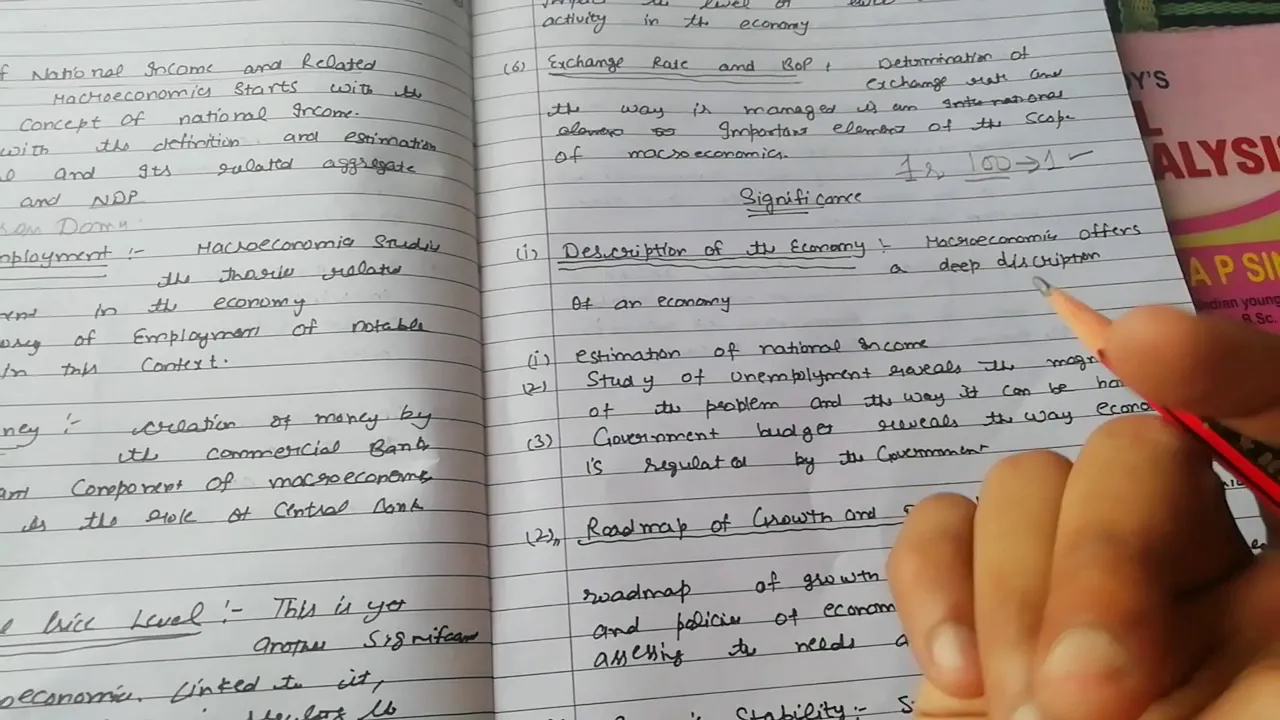 National Income and Related
Macroeconomics Starts with the
concept of national Income.
with the definition and estimation
and its related aggregate
and NDP
mployment :- Macroeconomic Studies
the related
in the economy
of Employment of notable
in this Context.
ney :- creation of money by
the commercial Bank
Component of macroeconomic
is the role of Central Bank
Price Level :- This is yet
another Significant
oeconomic. Linked to it,
activity in the economy
(6) Exchange Rate and BOP : Determination of
exchange rate and
the way is managed is an International
Important element of the scope
of macroeconomics.
100 → 1
Significance
(i) Description of the Economy :- Macroeconomic offers
a deep discription
Of an economy
(i) estimation of national Income
(2) Study of unemplyment reveals the magn
of the problem and the way it can be ha
(3) Government budget reveals the way econo
is regulated by the Government
(2) Roadmap of Growth and
roadmap of growth
and policies of econom
assessing the needs a
Stability :- S
Y'S
L
ALYSI
A P SIN
ndian young
B.Sc.